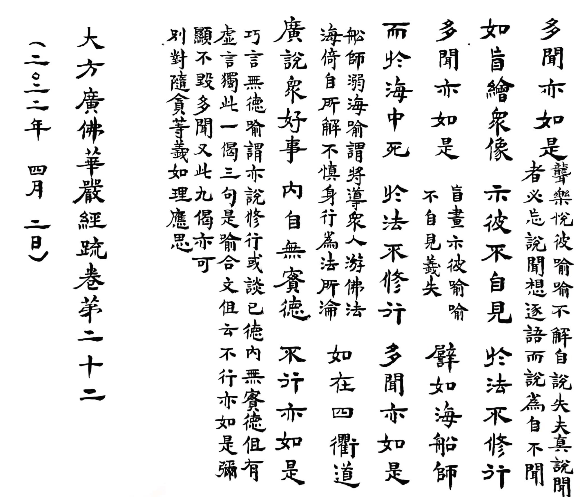 多聞亦如是
聾樂悅彼喻喻不解自說失夫真說聞
者必忘說聞想逐語而說為自不聞
如盲繪眾像 示彼不自見 於法不修行
多聞亦如是
盲畫示彼喻喻
不自見義失
譬如海船師
而於海中死 於法不修行 多聞亦如是
船師溺海喻謂將導衆人游佛法
海倚自所解不慎身行為法所淪
如在四衢道
廣說眾好事 內自無實德 不行亦如是
巧言無德喻謂亦說修行或談已德內無實德但有
虛言獨此一偈三句是喻合文但云不行亦如是彌
顯不毀多聞又此九偈亦可
別對隨貪等義如理應思
大方廣佛華嚴經疏卷第二十二
(二〇二二年 四月 二日)